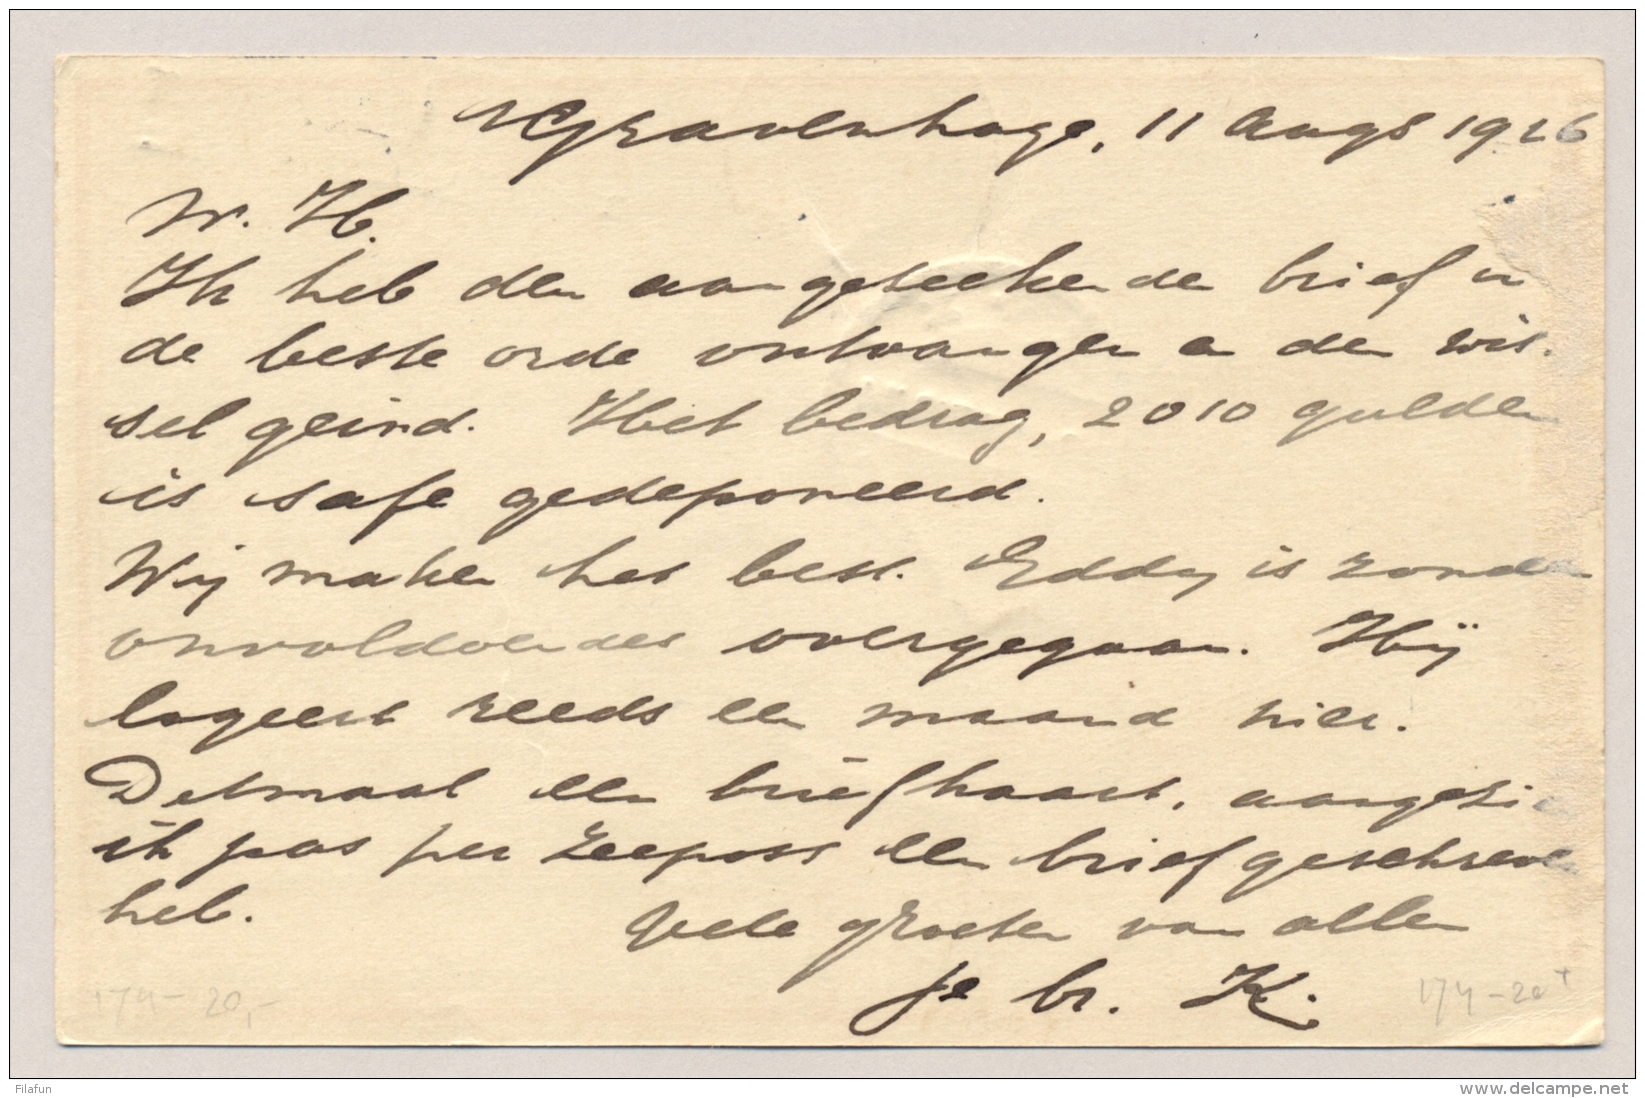 's Gravenhage, 11 Augs 1926
W. H.
Ik heb den aangeteekenden brief in
de beste orde ontvangen en den wis-
sel geind. Het bedrag, 2010 gulden
is safe gedeponeerd.
Wij maken het best. Eddy is zonder
onvoldoendes overgegaan. Hij
logeert reeds een maand hier.
Ditmaal een briefkaart, aangezien
ik pas per zeepost een brief geschreven
heb.
Vele groeten van allen
je br. K.
174-20,-
174-20+
Filafun
www.delcampe.net